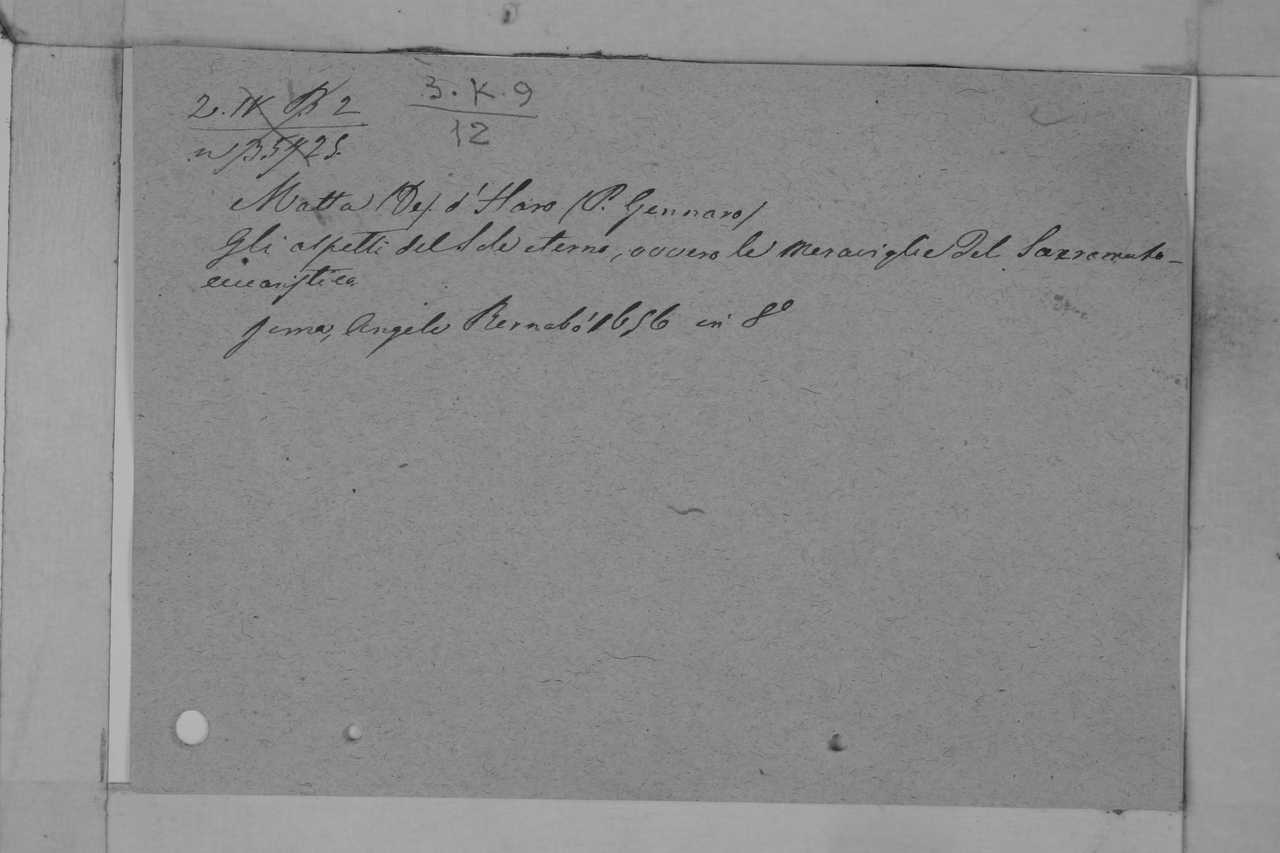 3. K. 9
12
Matta (De) d'Haro (P. Gennaro)
Gli aspetti del Sole eterno, ovvero le meraviglie del Sacramento
eucaristico
Angelo Bernabò 1656 in 8º